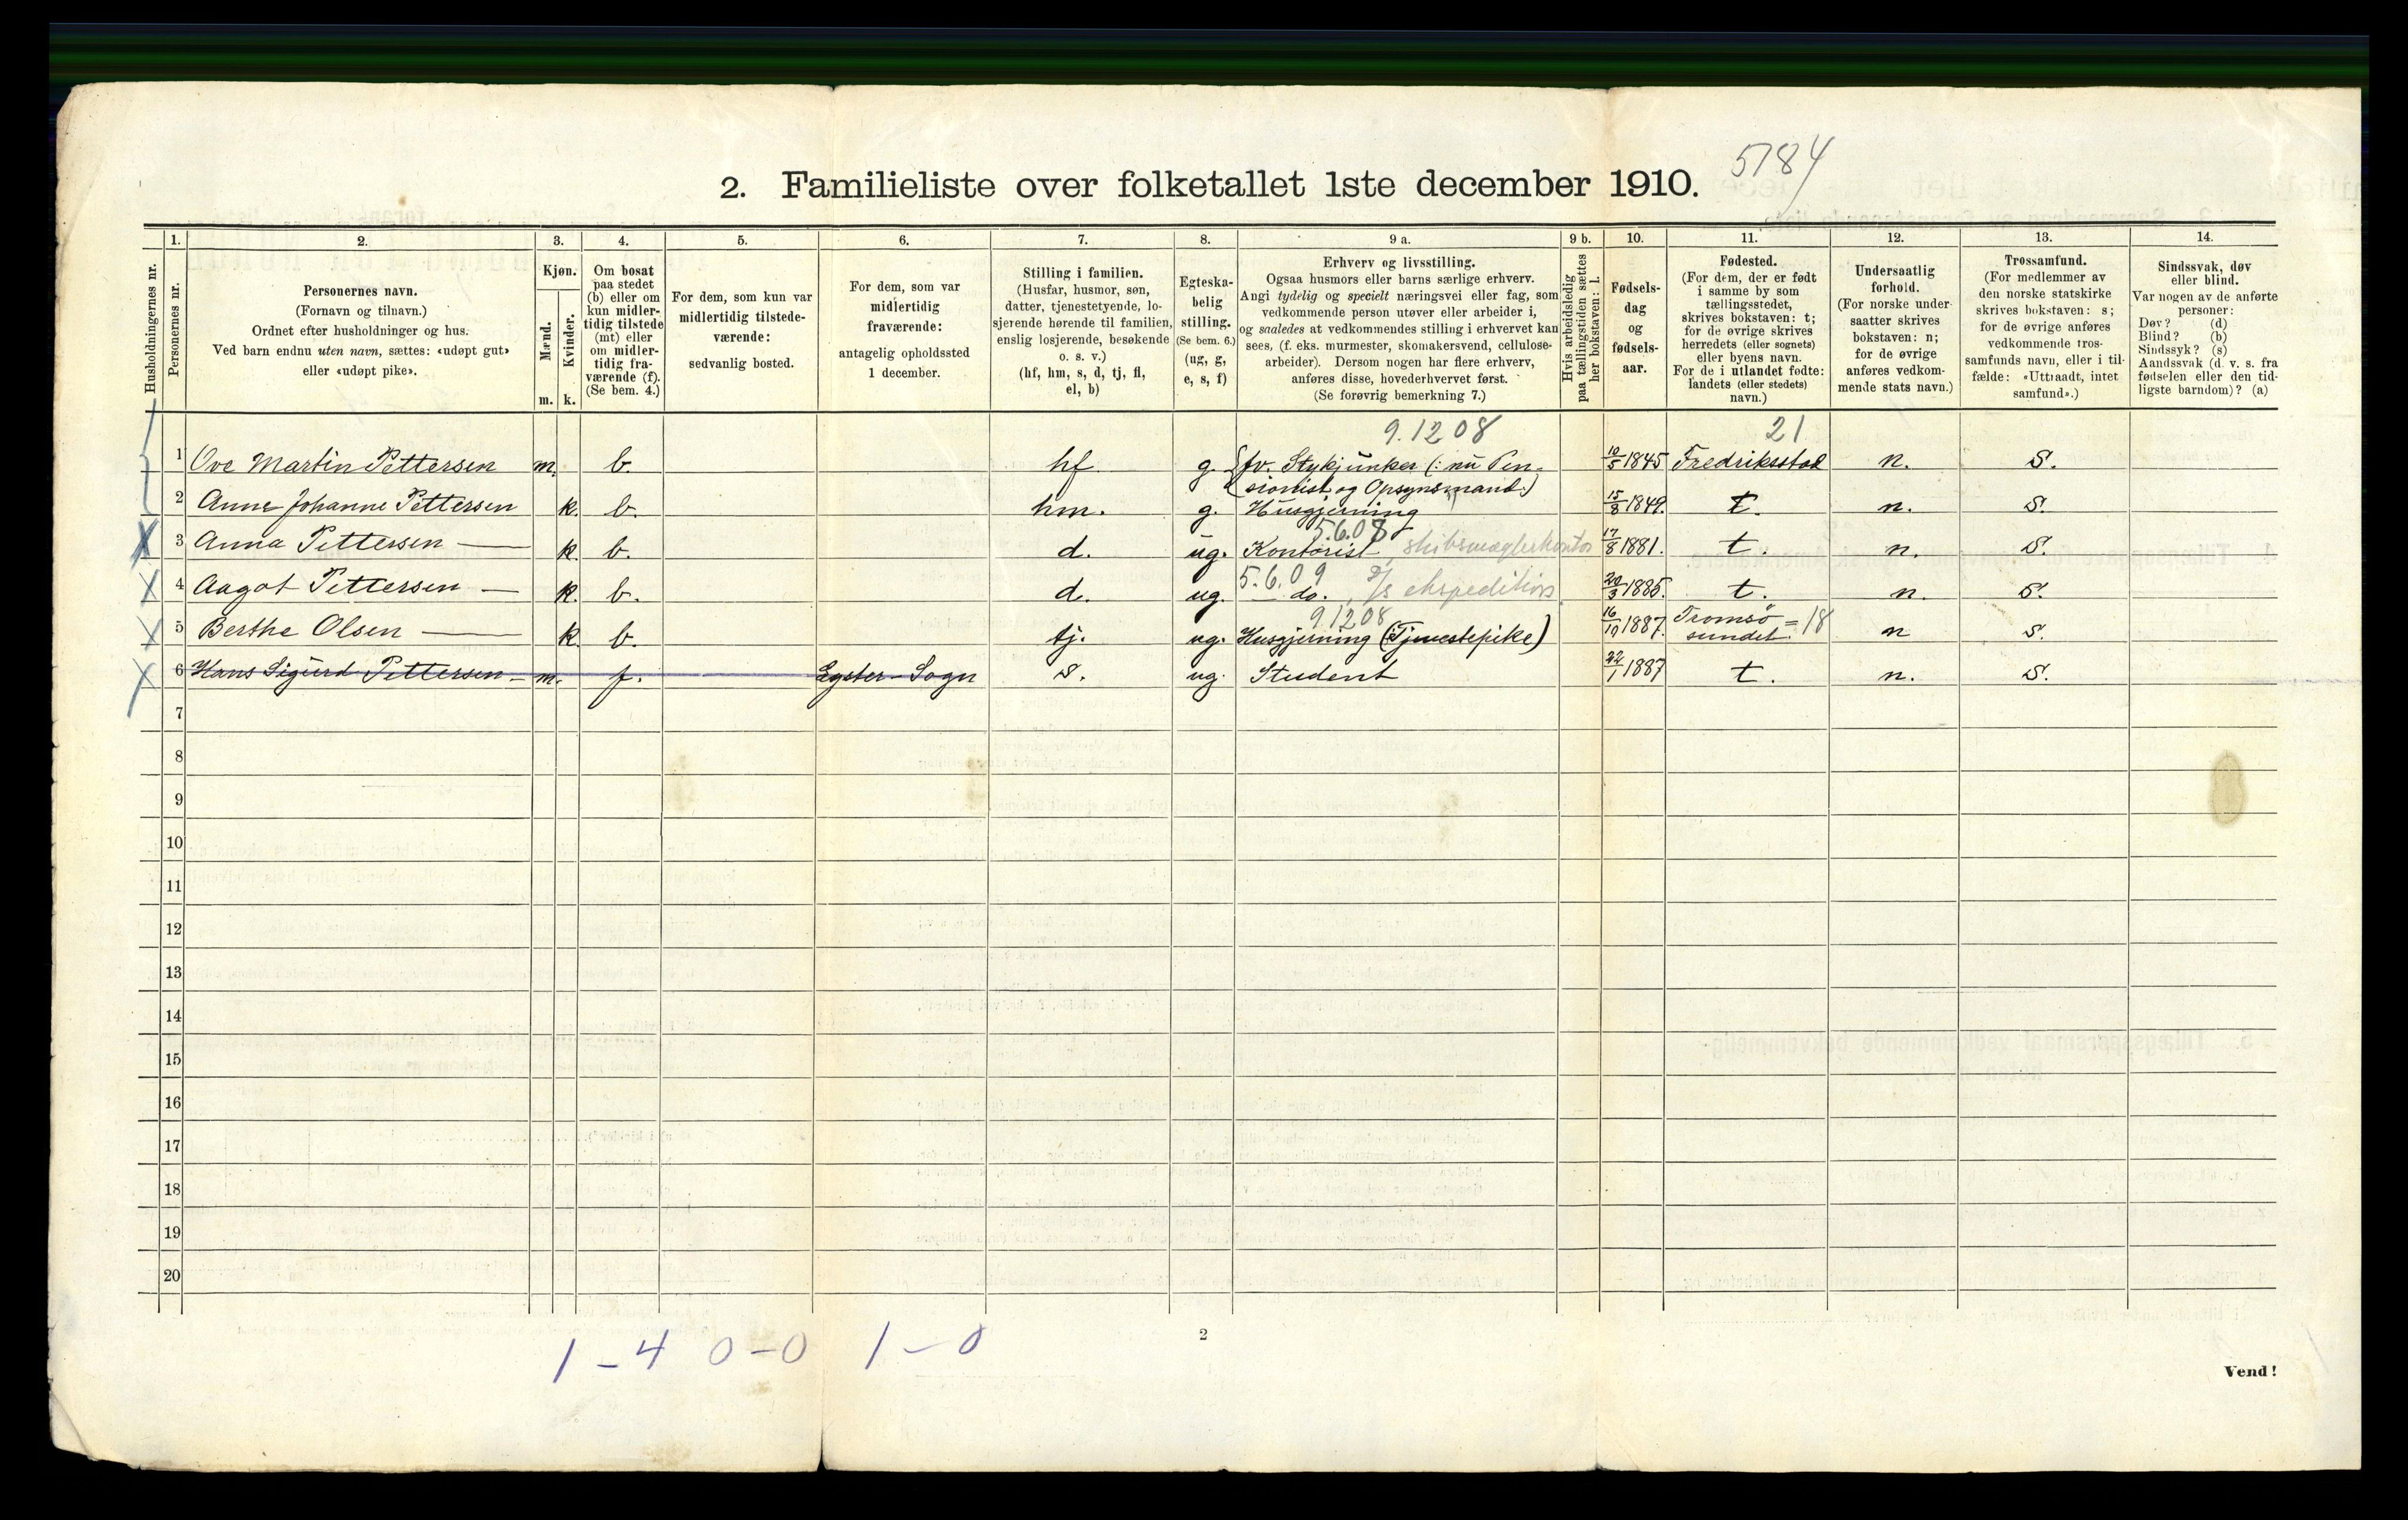 5784
2. Familieliste over folketallet 1ste december 1910.
Husholdningernes nr.
1. Personernes nr.
2. Personernes navn. (Fornavn og tilnavn.) Ordnet efter husholdninger og hus. Ved barn endnu uten navn, sættes: «udøpt gut» eller «udøpt pike».
3. Kjøn. Mænd. m. Kvinder. k.
4. Om bosat paa stedet (b) eller om kun midlertidig tilstede (mt) eller om midlertidig fraværende (f). (Se bem. 4.)
5. For dem, som kun var midlertidig tilstedeværende: sedvanlig bosted.
6. For dem, som var midlertidig fraværende: antagelig opholdssted 1 december.
7. Stilling i familien. (Husfar, husmor, søn, datter, tjenestetyende, losjerende hørende til familien, enslig losjerende, besøkende o. s. v.) (hf, hm, s, d, tj, fl, el, b)
8. Egteskabelig stilling. (Se bem. 6.) (ug, g, e, s, f)
9 a. Erhverv og livsstilling. Ogsaa husmors eller barns særlige erhverv. Angi tydelig og specielt næringsvei eller fag, som vedkommende person utøver eller arbeider i, og saaledes at vedkommendes stilling i erhvervet kan sees, (f. eks. murmester, skomakersvend, cellulosearbeider). Dersom nogen har flere erhverv, anføres disse, hovederhvervet først. (Se forøvrig bemerkning 7.)
9 b. Hvis arbeidsledig paa tællingstiden sættes her bokstaven: l.
10. Fødselsdag og fødselsaar.
11. Fødested. (For dem, der er født i samme by som tællingsstedet, skrives bokstaven: t; for de øvrige skrives herredets (eller sognets) eller byens navn. For de i utlandet fødte: landets (eller stedets) navn.)
12. Undersaatlig forhold. (For norske undersaatter skrives bokstaven: n; for de øvrige anføres vedkommende stats navn.)
13. Trossamfund. (For medlemmer av den norske statskirke skrives bokstaven: s; for de øvrige anføres vedkommende trossamfunds navn, eller i tilfælde: «Uttraadt, intet samfund».)
14. Sindssvak, døv eller blind. Var nogen av de anførte personer: Døv? (d) Blind? (b) Sindssyk? (s) Aandssvak (d. v. s. fra fødselen eller den tidligste barndom)? (a)
9.12 08 21
1 Ove Martin Pettersen m. b. hf g. fv. Stykjunker (: nu Pen- 10/5 1845 Fredriksstad n. s.
sionist og Opsynsmand.)
2 Anne Johanne Pettersen k. b. hm. g. Husgjerning 15/8 1849. t. n. s.
5.6.08
3 Anna Pettersen — k. b. d. ug. Kontorist, skibsmæglerkontor 17/8 1881. t. n. s.
5.6.09
4 Aagot Pettersen — k. b. d. ug. do. , D/S ekspedition 20/3 1885. t. n. s.
9.12 08
5 Berthe Olsen — k. b. tj. ug. Husgjerning (:Tjenestepike) 16/10 1887. Tromsø- = 18
sundet. n s.
6 Hans Sigurd Pettersen - m. f. Lyster - Sogn s. ug. Student 22/1 1887 t. n. s.
7
8
9
10
11
12
13
14
15
16
17
18
19
20
1 - 4 0 - 0 1 - 0
2
Vend!